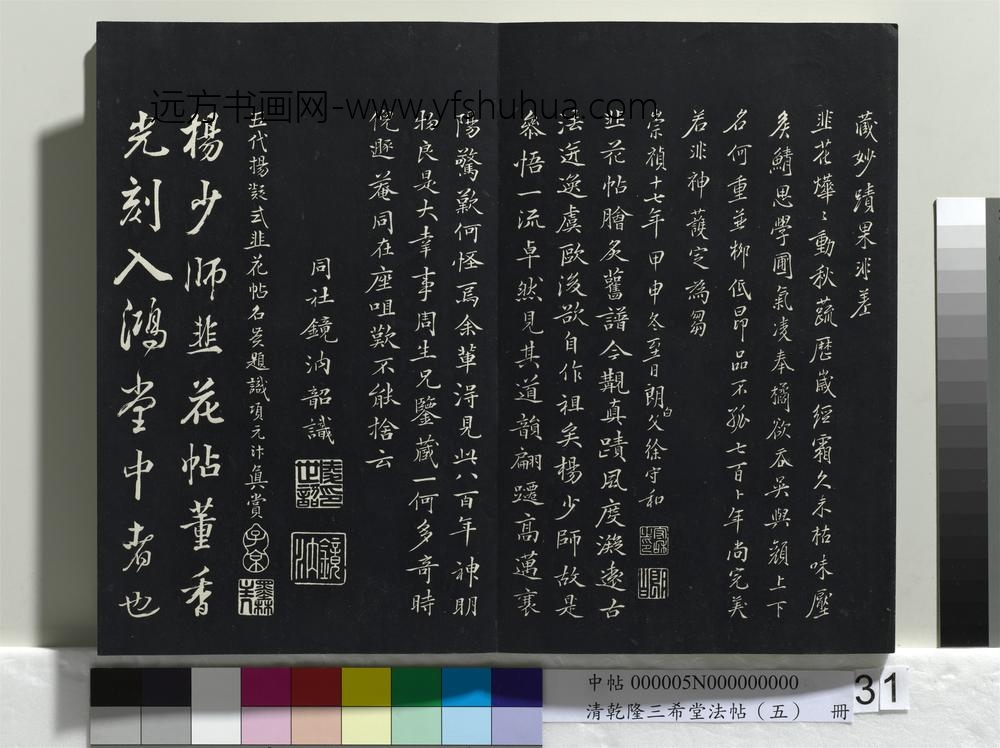 藏妙蹟果非差
韭花燁〻動秋蔬歷歲經霜久未枯味壓
矦鯖思學圃氣凌奉橘欲吞吳與顏上下
名何重並柳低昂品不孤七百卜年尚完美
若非神護定為芻
崇禎十七年甲申冬至日朗父徐守和
白
韭花帖膾炙舊譜今觀真蹟風度凝遠古
法迸逸虞歐後欲自作祖矣楊少師故是
叅悟一流卓然見其道韻翩躚高邁襄
陽驚歎何怪焉余輩得見此六百年神明
物良是大幸事周生兄鑒藏一何多奇時
倪遯菴同在座咀歎不能捨云
同社鏡汭韶識
鏡汭
五代楊凝式韭花帖名蹟題識項元汴真賞
子京
墨林
楊少師韭花帖董香
光刻入鴻堂中者也
远方书画网-www.yfshuhua.com
中帖 000005N000000000
清乾隆三希堂法帖（五） 冊
31